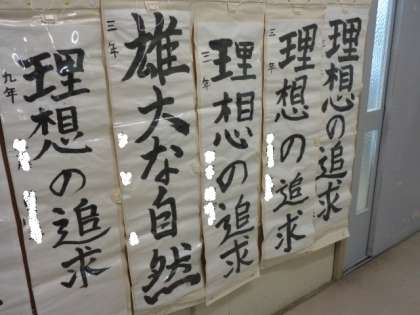 理想の追求
三年
理想の追求
三年
理想の追求
三年
雄大な自然
三年
理想の追求
九年